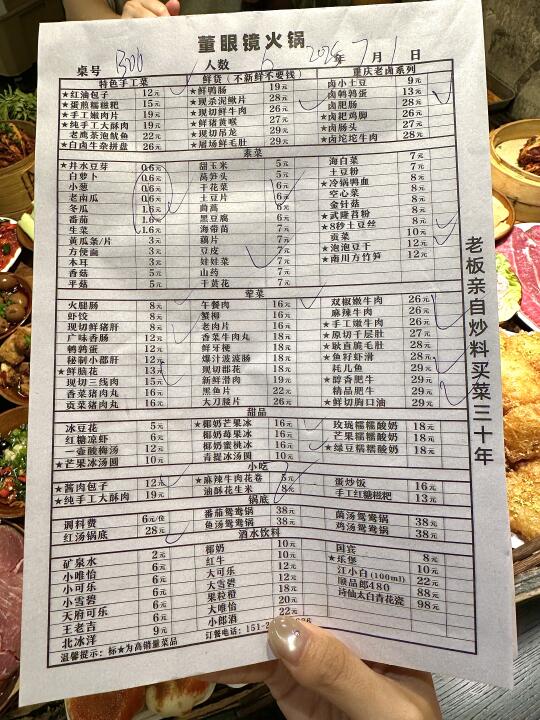 董眼镜火锅
桌号 B06 人数 6 年 7月1日
特色手工菜 鲜货（不新鲜不要钱） 重庆老卤系列
★红油包子 12元 ★鲜鸭肠 19元 卤小土豆 9元
★蛋煎糯糍粑 15元 ★现杀泥鳅片 28元 卤鹌鹑蛋 13元
★手工嫩肉片 19元 ★现切鲜牛肉 26元 卤肥肠 28元
★纯手工大酥肉 19元 ★鲜猪黄喉 27元 ★卤耙鸡脚 26元
老鹰茶泡鱿鱼 22元 ★现切吊龙 29元 ★卤肠头 27元
★白卤牛杂拼盘 26元 ★屠场鲜毛肚 29元 ★卤坨坨牛肉 28元
素菜
★井水豆芽 0.6元 甜玉米 5元 海白菜 7元
白萝卜 0.6元 莴笋头 5元 土豆粉 7元
小葱 0.6元 干花菜 6元 ★冷锅鸭血 8元
老南瓜 0.6元 土豆片 6元 空心菜 8元
冬瓜 1.6元 茼蒿 6元 金针菇 8元
番茄 1.6元 黑豆腐 6元 ★武隆苕粉 8元
生菜 1.6元 海带苗 7元 ★8秒土豆丝 8元
黄瓜条/片 3元 藕片 7元 贡菜 10元
方便面 3元 豆皮 7元 ★泡泡豆干 12元
木耳 3元 娃娃菜 7元 ★南川方竹笋 12元
香菇 5元 山药 7元
平菇 5元 干黄花 7元
荤菜
火腿肠 8元 午餐肉 16元 双椒嫩牛肉 26元
虾饺 8元 蟹柳 16元 麻辣牛肉 26元
现切鲜猪肝 8元 老肉片 16元 ★手工嫩牛肉 26元
广味香肠 12元 香菜牛肉丸 18元 ★原切千层肚 27元
鹌鹑蛋 12元 鲜牙梗 18元 ★耿直脆毛肚 28元
秘制小郡肝 12元 爆汁波波肠 18元 ★鱼籽虾滑 28元
★鲜脑花 13元 现切郡花 18元 耗儿鱼 29元
现切三线肉 15元 新鲜滑肉 19元 ★醇香肥牛 29元
香菜猪肉丸 16元 黑鱼片 22元 精品肥牛 29元
贡菜猪肉丸 16元 大刀腰片 26元 ★鲜切胸口油 29元
甜品
冰豆花 5元 ★椰奶芒果冰 16元 玫珑糯糯酸奶 18元
红糖凉虾 6元 椰奶莓果冰 16元 芒果糯糯酸奶 18元
一壶酸梅汤 12元 椰奶蜜桃冰 16元 ★绿豆糯糯酸奶 18元
★芒果冰汤圆 10元 青提冰汤圆 10元
小吃
★酱肉包子 12元 ★麻辣牛肉花卷 5元 蛋炒饭 16元
★纯手工大酥肉 19元 油酥花生米 8元 手工红糖糍粑 13元
锅底
调料费 6元/位 番茄鸳鸯锅 38元 菌汤鸳鸯锅 38元
红汤锅底 28元 鱼汤鸳鸯锅 38元 鸡汤鸳鸯锅 38元
酒水饮料
矿泉水 2元 椰奶 10元 国宾
小唯怡 6元 红牛 10元 ★乐堡 8元
小可乐 6元 大可乐 12元 江小白(100ml) 10元
小雪碧 6元 大雪碧 12元 顺品郎480 22元
天府可乐 6元 果粒橙 18元 诗仙太白青花瓷 88元
王老吉 6元 大唯怡 20元 98元
北冰洋 9元 小郎酒 22元
温馨提示：标★为高销量菜品 订餐电话：151-2
老板亲自炒料买菜三十年